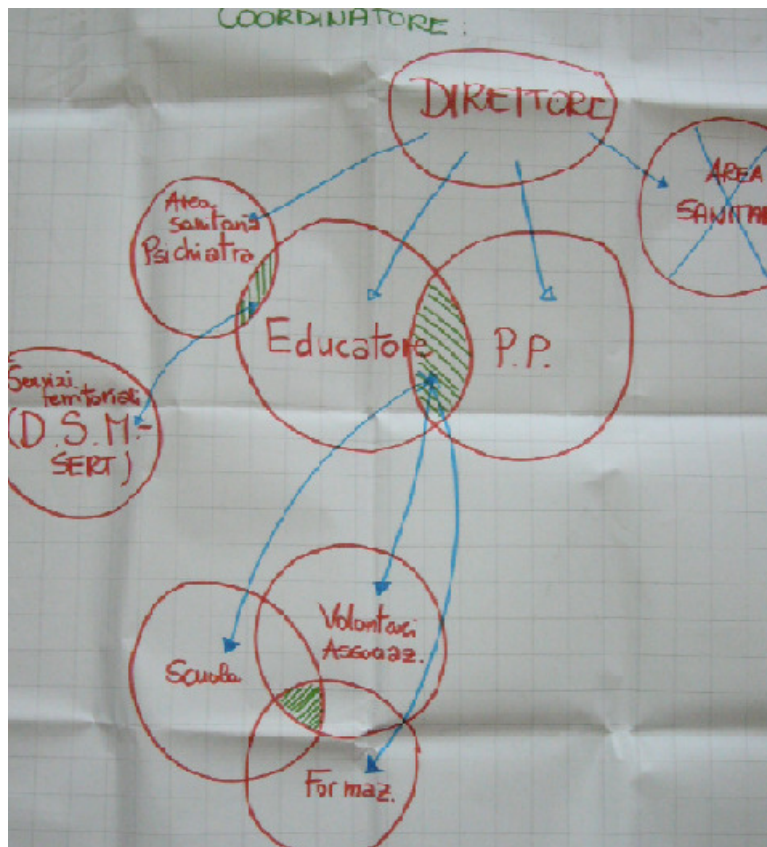 COORDINATORE:
DIRETTORE
Area
sanitaria
Psichiatra
AREA
SANITAR
Educatore
P.P.
Servizi
territoriali
(D.S.M.-
SERT)
Volontari
Associaz.
Scuola
Formaz.